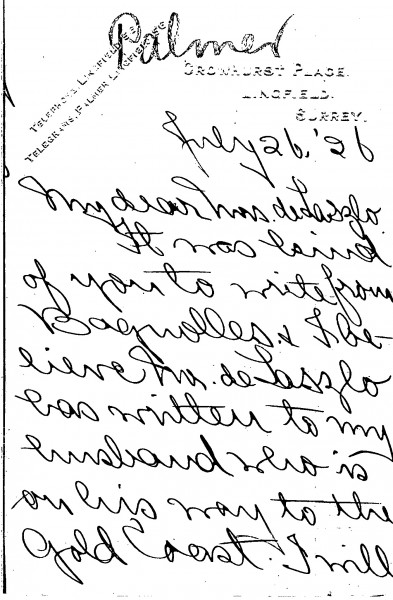 Palmer
TELEPHONE, LINGFIELD
TELEGRAMS, PALMER LINGFIELD
CROWHURST PLACE.
LINGFIELD.
SURREY.
July 26, '26
My dear Mrs de Laszlo
It was kind
of you to write from
Bagnolles, & I be-
lieve Mr. de Laszlo
has written to my
husband who is
on his way to the
Gold Coast. I will